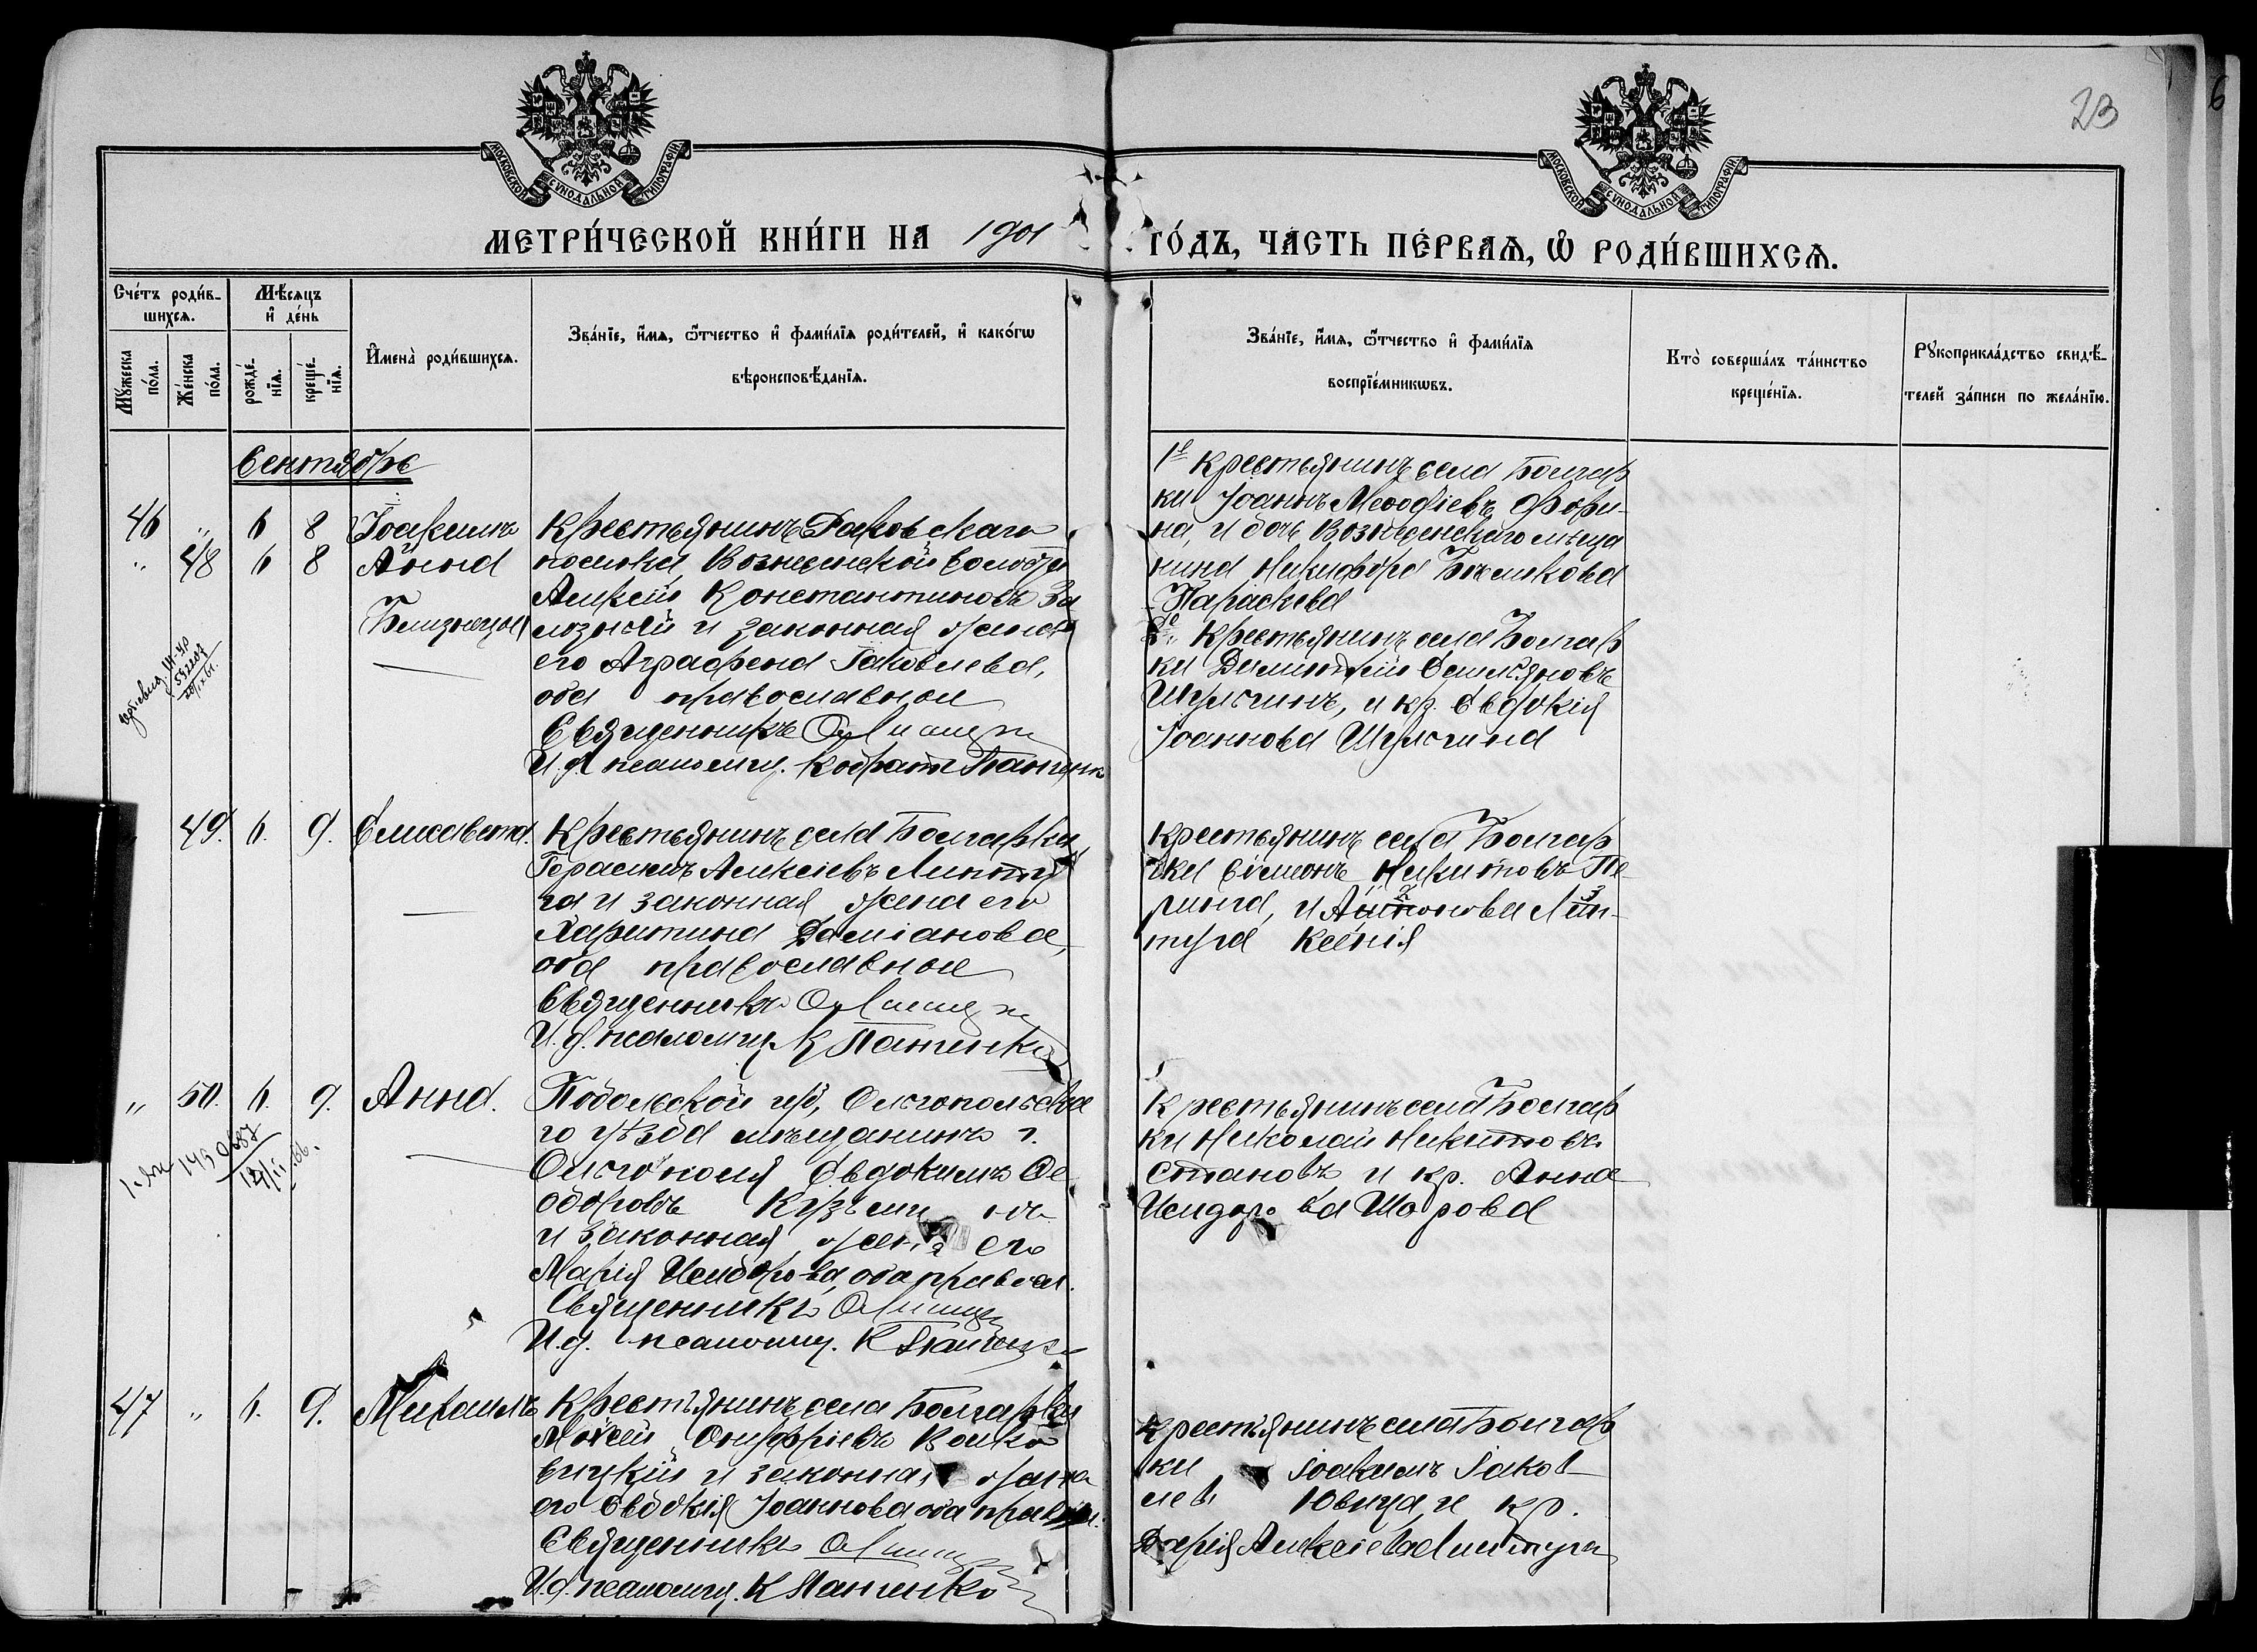 23
МОСКОВСКОЙ СѴНОДАЛЬНОЙ ТИПОГРАФІИ
МОСКОВСКОЙ СѴНОДАЛЬНОЙ ТИПОГРАФІИ
МЕТРИ́ЧЕСКОЙ КНИ́ГИ НА 1901 ГО́ДЪ, ЧА́СТЬ ПЕ́РВАѦ, Ѡ҆ РОДИ́ВШИХСѦ.
Сче́тъ роди́в-
шихсѧ.
Мꙋ́жеска по́ла.
Же́нска по́ла.
Мѣ́сѧцъ и҆ де́нь
рожде́-
нїѧ.
креще́-
нїѧ.
И҆мена̀ роди́вшихсѧ.
Зва́нїе, и҆́мѧ, ѻ҆́тчество и҆ фами́лїѧ роди́телей, и҆ како́гѡ
вѣроисповѣ́данїѧ.
Зва́нїе, и҆́мѧ, ѻ҆́тчество и҆ фами́лїѧ
воспрїе́мникѡвъ.
Кто̀ соверша́лъ та́инство
креще́нїѧ.
Рꙋкоприкла́дство свидѣ́-
телей за́писи по жела́нїю.
Сентябрь
46 " 6 8 Іоакимъ
" 48 6 8 Анна
Близнецы
Крестьянинъ Раковскаго
поселка, Вознесенской волости
Алексѣй Константиновъ За
лозный и законная жена
его Аграфена Іаковлева,
оба православные
Священникъ
И. д. псаломщ. Кодратъ Панченко
1е Крестьянинъ села Болгар
ки Іоаннъ Меѳодіевъ
на, и дочь Вознесенскаго мѣща
нина Никифора
Параскева
2е Крестьянинъ села Болгар
ки Димитрій Емиліановъ
Шульгинъ, и кр. Евдокія
Іоаннова Шульгина
49. 6. 9. Елисавета.
Крестьянинъ села Болгарки
Герасимъ Алексіевъ Линту
га и законная жена его
Харитина Даміанова,
оба православные
Священникъ
И. д. псаломщ. К Панченко
Крестьянинъ села Болгар
ки Симеонъ Никитовъ
и Антонова Лин-
туга Ксенія
" 50. 6. 9. Анна.
Подольской губ, Ольгопольска
го уѣзда мѣщанинъ г.
Ольгополя Евдокимъ Ѳе
одоровъ
и законная жена его
Марія Исидорова, оба правосл.
Священникъ
И. д. псаломщ. К Панченко
Крестьянинъ села Болгар
ки Николай Никитовъ
Становъ и кр. Анна
Исидорова Шарова
47 " 6. 9. Михаилъ
Крестьянинъ села Болгарки
Моѵсей Онуфріевъ Волко
вицкій и законная жена
его Евдокія Іоаннова оба правосл.
Священникъ
И. д. псаломщ. К Панченко
Крестьянинъ села Болгар
ки Іоакимъ Іаков
левъ Ювица и кр.
Дарія Алексіева Линтуга